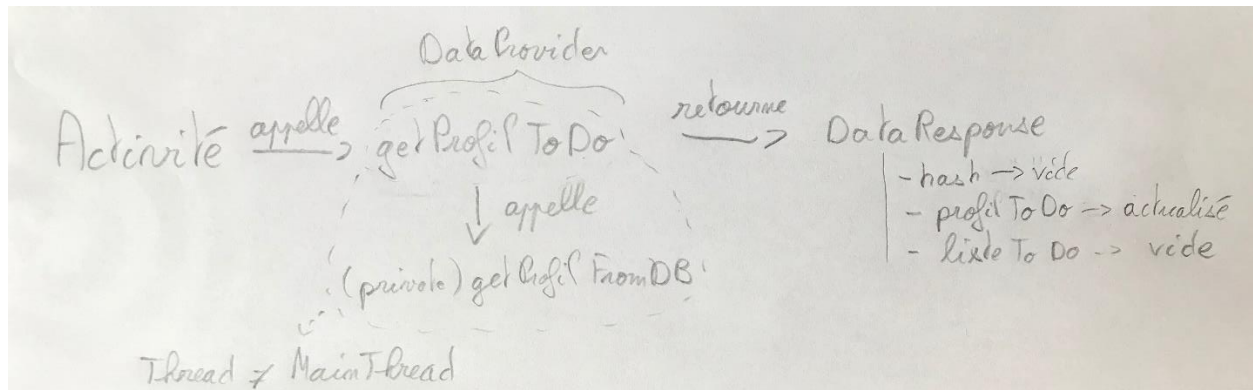 DataProvider
Activité appelle getProfilToDo retourne DataResponse
- hash -> vide
appelle - profilToDo -> actualisé
- listeToDo -> vide
(private) getProfilFromDB
Thread ≠ MainThread